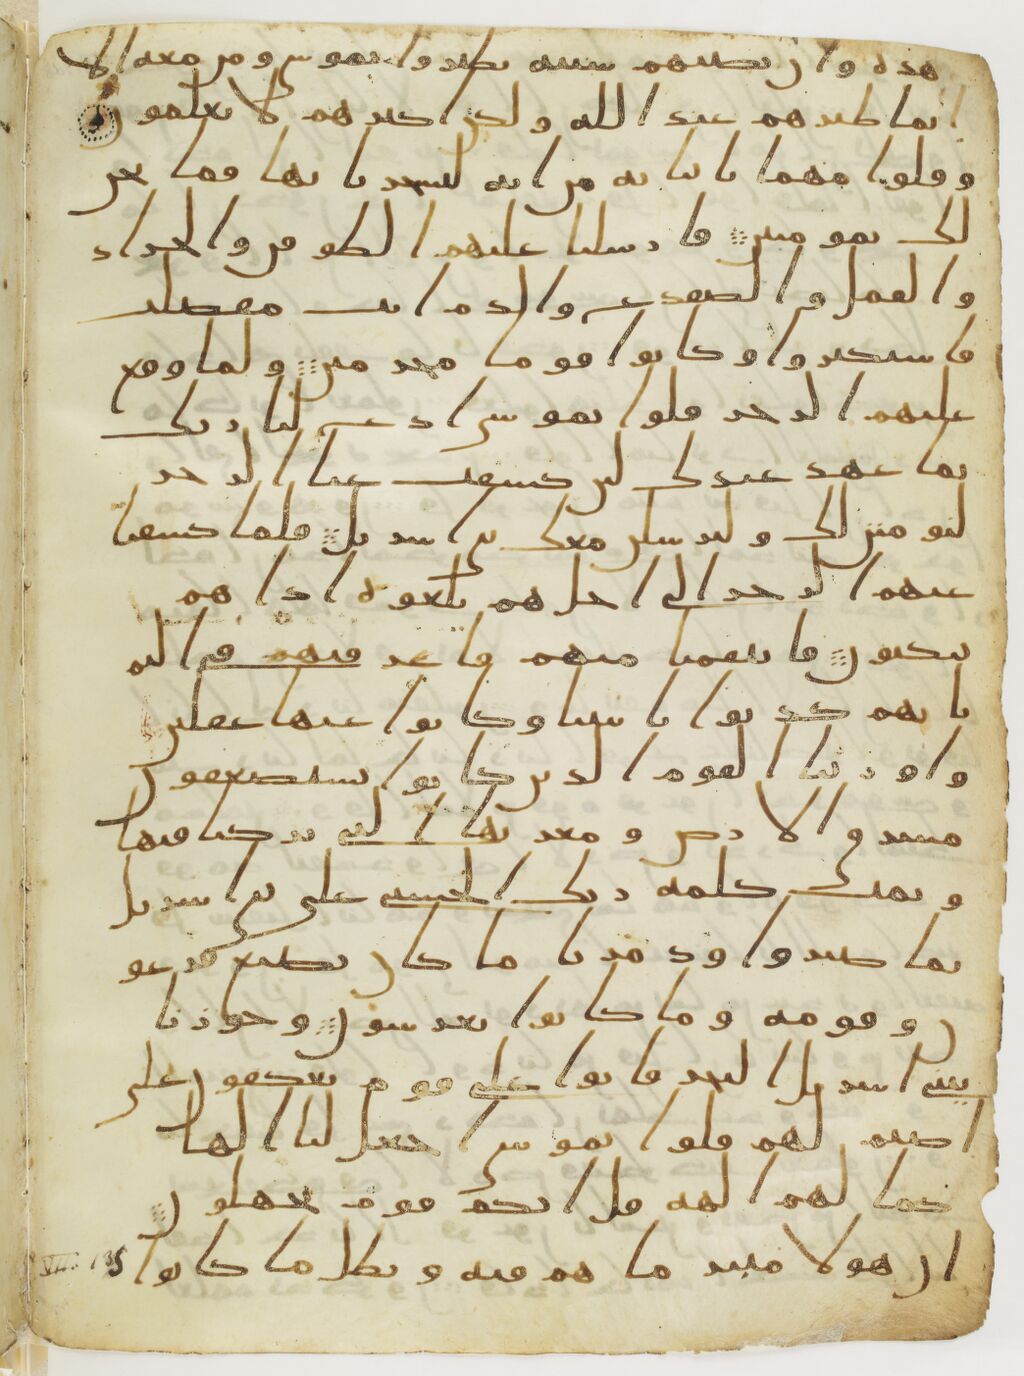 هذه وان تصبهم سيه يطيروا بموسى ومن معه الا
انما طيرهم عند الله ولكن اكثرهم لا يعلمون
وقلوا مهما تاتنا به من ايه لتسحرنا بها فما نحن
لك بمومنين فارسلنا عليهم الطوفن والجراد
والقمل والضفدع والدم ايت مفصلت
فاستكبروا وكانوا قوما مجرمين ولما وقع
عليهم الرجز قلوا يموسى ادع لنا ربك
بما عهد عندك لين كشفت عنا الرجز
لنومنن لك ولنرسلن معك بني اسريل فلما كشفنا
عنهم الرجز الى اجل هم بلغوه اذا هم
ينكثون فانتقمنا منهم فاغرقنهم في اليم
بانهم كذبوا بايتنا وكانوا عنها غفلين
واورثنا القوم الذين كانوا يستضعفون
مشرق الارض ومغربها التي بركنا فيها
وتمت كلمه ربك الحسنى على بني اسريل
بما صبروا ودمرنا ما كان يصنع فرعو
ن وقومه وما كانوا يعرشون وجوزنا
ببني اسريل البحر فاتوا على قوم يعكفون على
اصنم لهم قلوا يموسى اجعل لنا الها
كما لهم الهه قل انكم قوم تجهلون
ان هولا متبر ما هم فيه وبطل ما كانوا